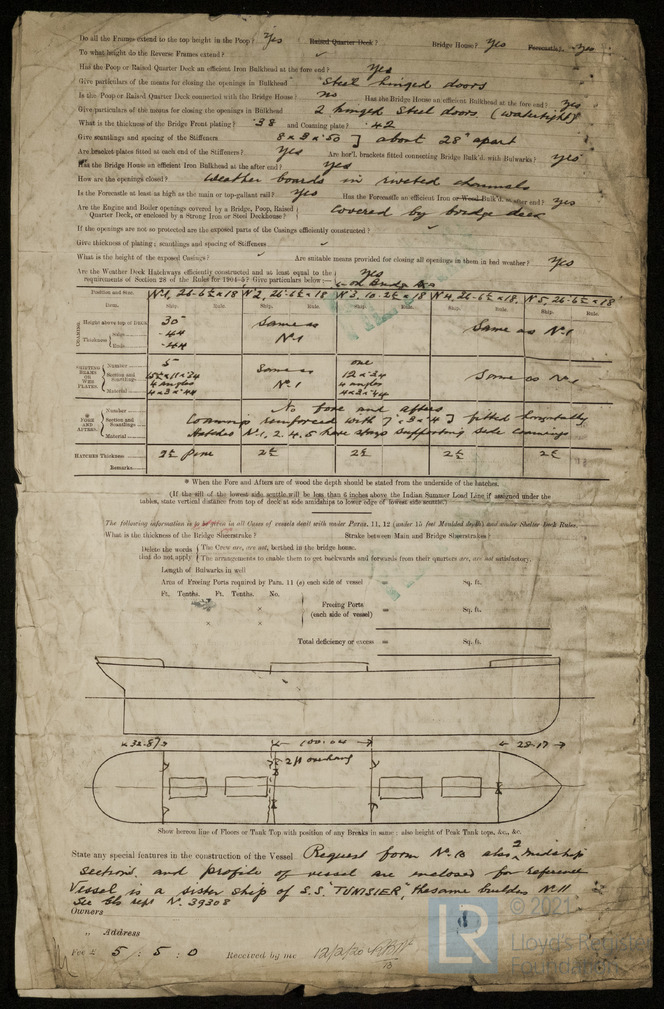 Do all the Frames extend to the top height in the Poop? Yes Raised Quarter Deck? Bridge House? Yes Forecastle? Yes
To what height do the Reverse Frames extend? ✓
Has the Poop or Raised Quarter Deck an efficient Iron Bulkhead at the fore end? Yes
Give particulars of the means for closing the openings in Bulkhead Steel hinged doors
Is the Poop or Raised Quarter Deck connected with the Bridge House? no Has the Bridge House an efficient Bulkhead at the fore end? Yes
Give particulars of the means for closing the openings in Bulkhead 2 hinged Steel doors (watertight)
What is the thickness of the Bridge Front plating? .38 and Coaming plate? .42
Give scantlings and spacing of the Stiffeners 8 x 3 x .50 ] about 28" apart
Are bracket plates fitted at each end of the Stiffeners? Yes Are hor'l. brackets fitted connecting Bridge Bulk'd. with Bulwarks? Yes
Has the Bridge House an efficient Iron Bulkhead at the after end? Yes
How are the openings closed? Weather boards in riveted channels
Is the Forecastle at least as high as the main or top-gallant rail? Yes Has the Forecastle an efficient Iron or Wood Bulk'd. at after end? Yes
Are the Engine and Boiler openings covered by a Bridge, Poop, Raised Quarter Deck, or enclosed by a Strong Iron or Steel Deckhouse? Covered by bridge deck
If the openings are not so protected are the exposed parts of the Casings efficiently constructed? ✓
Give thickness of plating; scantlings and spacing of Stiffeners ✓
What is the height of the exposed Casings? ✓ Are suitable means provided for closing all openings in them in bad weather? Yes
Are the Weather Deck Hatchways efficiently constructed and at least equal to the requirements of Section 28 of the Rules for 1904-5? Give particulars below:— Yes
on Bridge Dk
Position and Size. No 1, 26-6 x 18 No 2, 26-6 x 18 No 3, 10-2 x 18 No 4, 26-6 x 18 No 5, 26-6 x 18
Item. Ship. Rule. Ship. Rule. Ship. Rule. Ship. Rule. Ship. Rule.
COAMING. Height above top of Deck 30" Same as No 1 Same as No 1
Thickness Sides .44
Ends .44
SHIFTING BEAMS OR WEB PLATES. Number 5 Same as No 1 one Same as No 1
Section and Scantlings 12 x .34
4 angles 4 angles
Material 4 x 3 x .44 4 x 3 x .44
* FORE AND AFTERS. Number No fore and afters
Section and Scantlings Coamings reinforced with fitted horizontally
Material Hatches No 1, 2, 4, 5 have stays supporting side coamings
HATCHES Thickness 2½ Pine 2½ 2½ 2½ 2½
Remarks.
* When the Fore and Afters are of wood the depth should be stated from the underside of the hatches.
(If the sill of the lowest side scuttle will be less than 6 inches above the Indian Summer Load Line if assigned under the
tables, state vertical distance from top of deck at side amidships to lower edge of lowest side scuttle.)
The following information is to be given in all Cases of vessels dealt with under Paras. 11, 12 (under 15 feet Moulded depth) and under Shelter Deck Rules.
What is the thickness of the Bridge Sheerstrake? Strake between Main and Bridge Sheerstrakes?
Delete the words that do not apply
The Crew are, are not, berthed in the bridge house.
The arrangements to enable them to get backwards and forwards from their quarters are, are not satisfactory.
Length of Bulwarks in well
Area of Freeing Ports required by Para. 11 (e) each side of vessel = Sq. ft.
Ft. Tenths. Ft. Tenths. No.
× Freeing Ports
(each side of vessel) = Sq. ft.
× ×
Total deficiency or excess = Sq. ft.
32.87
28.17
2 ft overhang
Show hereon line of Floors or Tank Top with position of any Breaks in same: also height of Peak Tank tops, &c., &c.
State any special features in the construction of the Vessel Request form No. B also 2 midship
sections and profile of vessel are enclosed for reference
Vessel is a sister ship of S.S. "TUNISIER", the same builders No. 11
See Gls rept No. 39308
Owners
" Address
Fee £ 5 : 5 : 0 Received by me 12/2/20
LR
© 2021
Lloyd's Register
Foundation